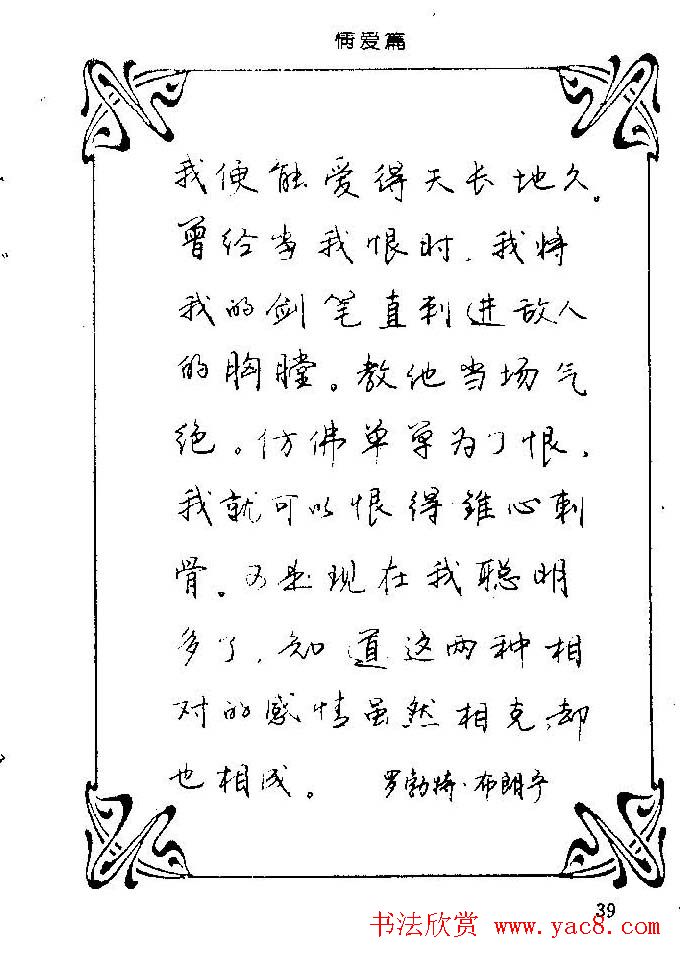 情爱篇
我便能爱得天长地久。
曾经当我恨时，我将
我的剑笔直刺进敌人
的胸膛。教他当场气
绝。仿佛单单为了恨，
我就可以恨得锥心刺
骨。可是现在我聪明
多了，知道这两种相
对的感情虽然相克，却
也相成。 罗勃特·布朗宁
39
书法欣赏 www.yac8.com